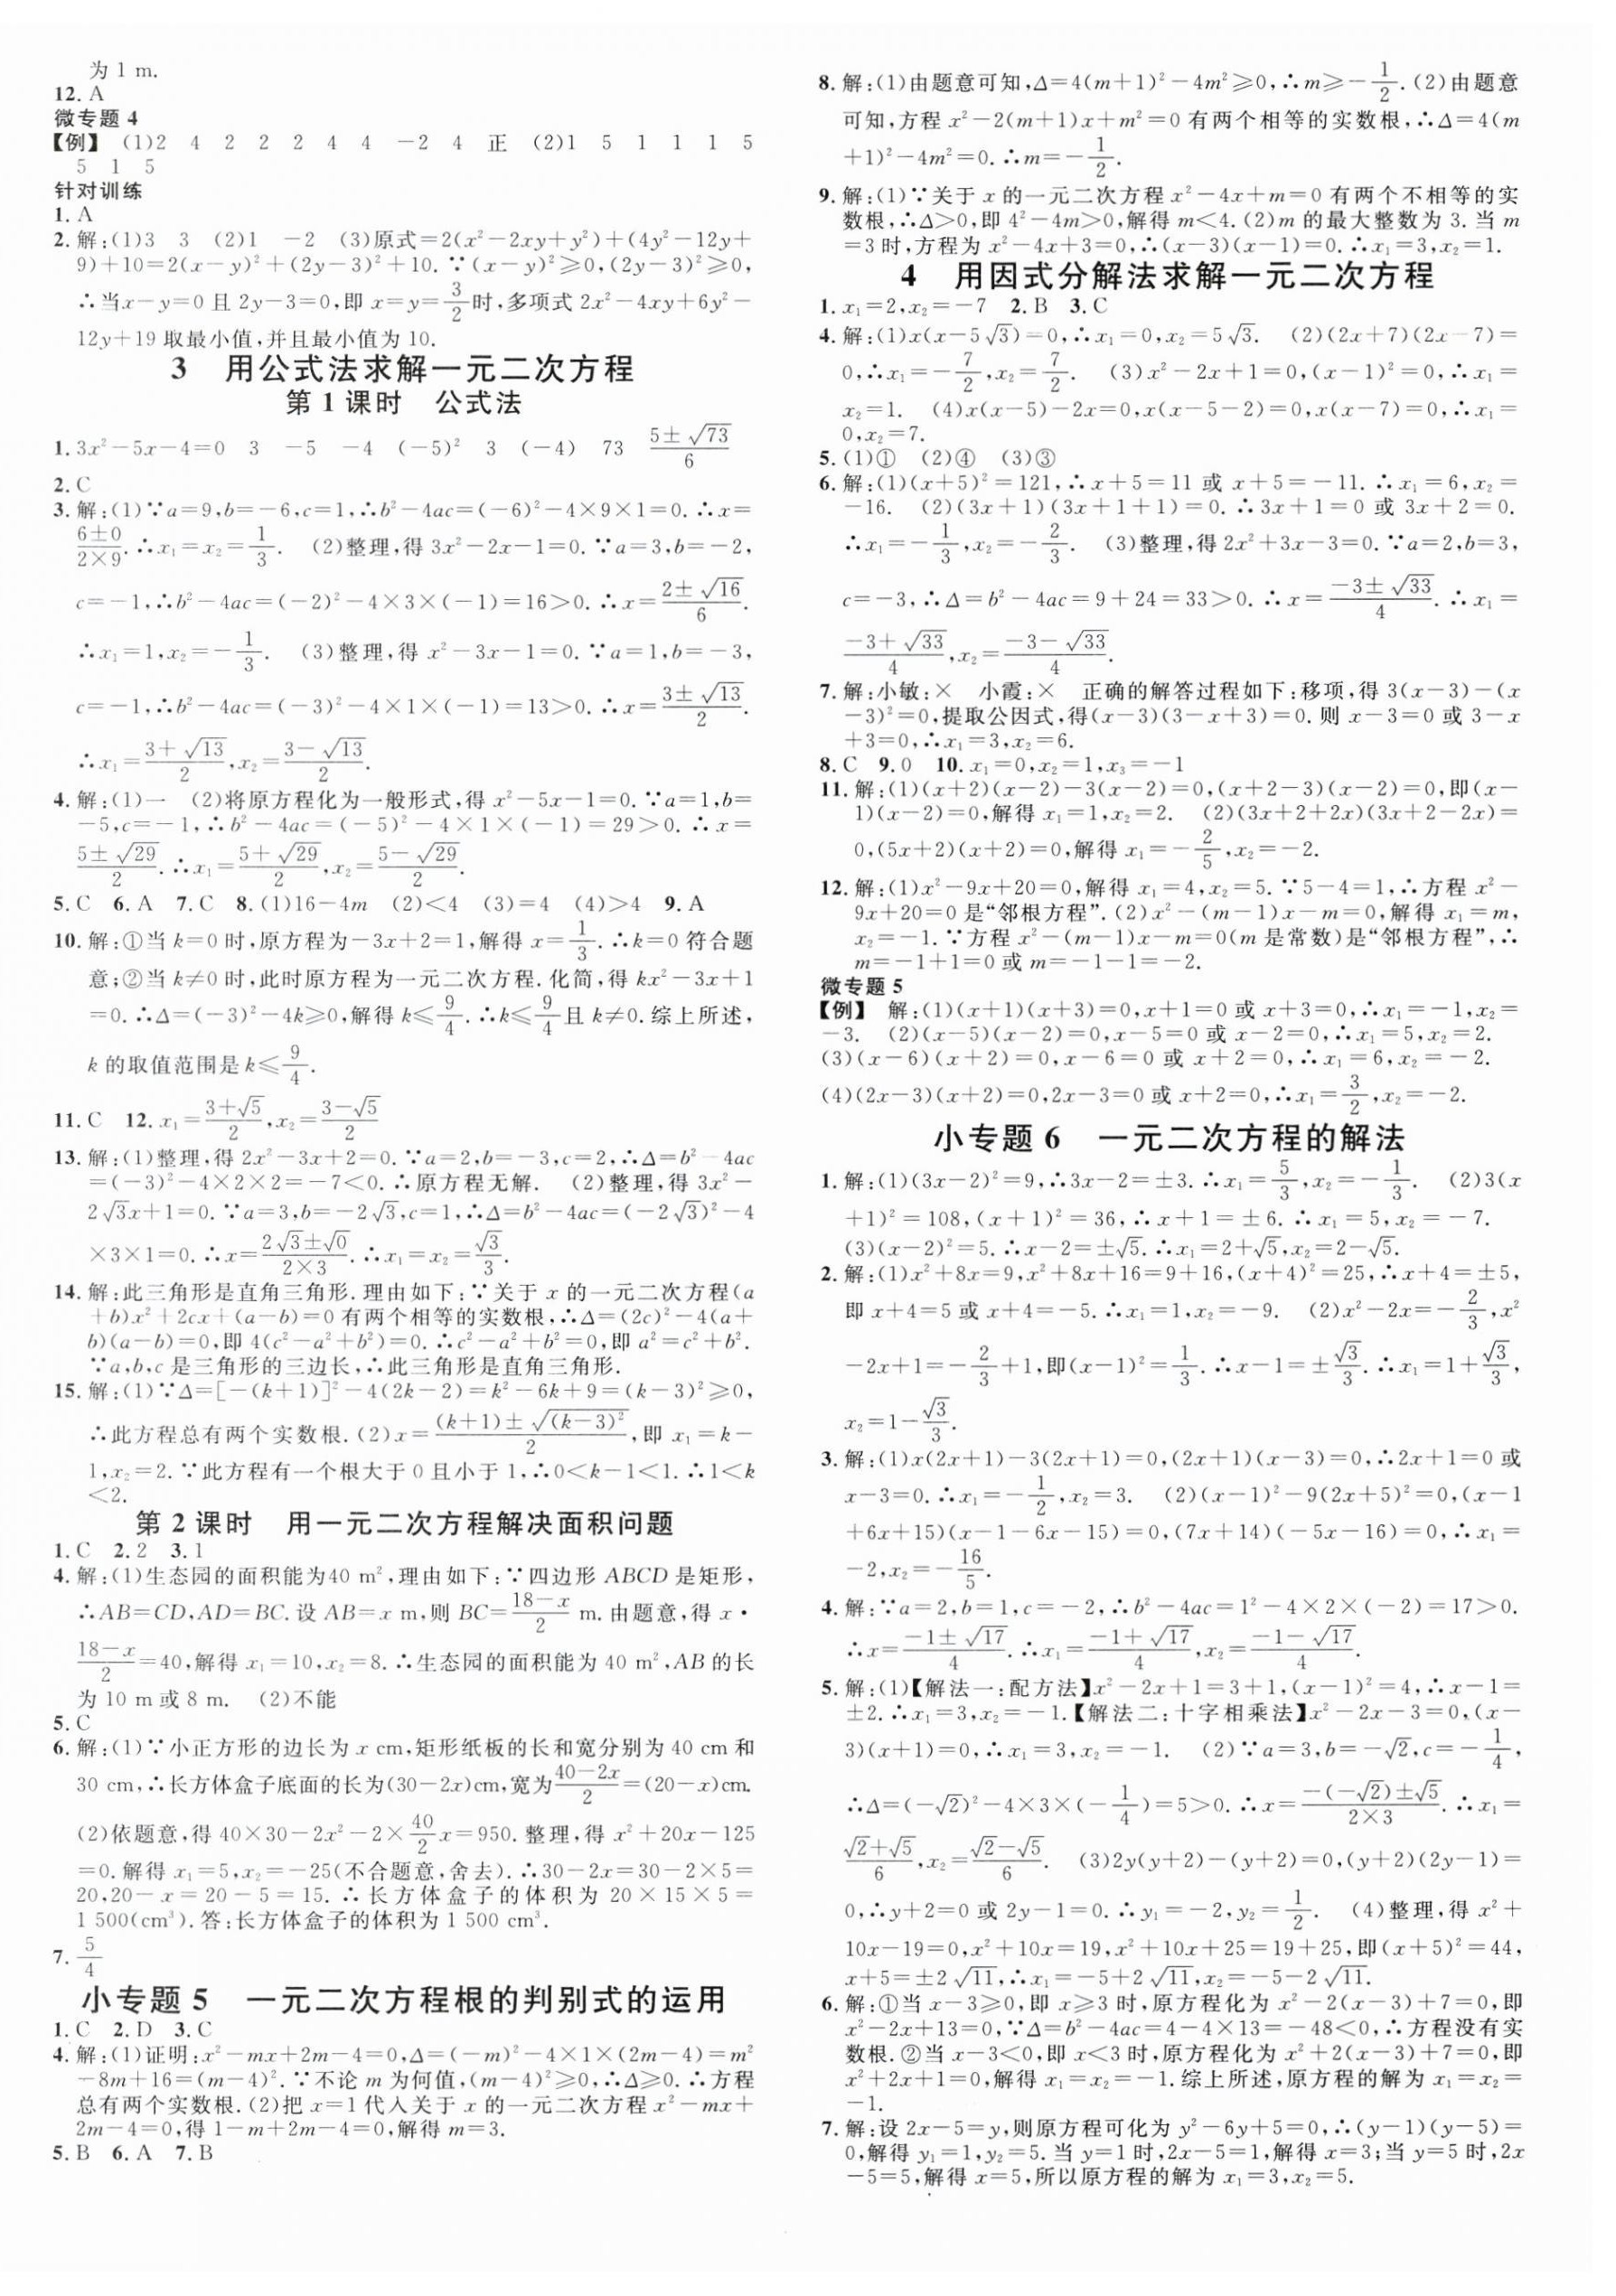 为 1 m.
12. A
微专题 4
【例】 (1)2 4 2 2 2 4 4 －2 4 正 (2)1 5 1 1 1 5
5 1 5
针对训练
1. A
2. 解:(1)3 3 (2)1 －2 (3)原式=2(x²－2xy+y²)+(4y²－12y+
9)+10=2(x－y)²+(2y－3)²+10. ∵(x－y)²≥0,(2y－3)²≥0,
∴当x－y=0 且 2y－3=0,即 x=y=3/2时,多项式 2x²－4xy+6y²－
12y+19 取最小值,并且最小值为 10.
3 用公式法求解一元二次方程
第 1 课时 公式法
1. 3x²－5x－4=0 3 －5 －4 (－5)² 3 (－4) 73 (5±√73)/6
2. C
3. 解:(1)∵a=9,b=－6,c=1,∴b²－4ac=(－6)²－4×9×1=0. ∴x=
(6±0)/(2×9). ∴x₁=x₂=1/3. (2)整理,得 3x²－2x－1=0. ∵a=3,b=－2,
c=－1,∴b²－4ac=(－2)²－4×3×(－1)=16>0. ∴x=(2±√16)/6.
∴x₁=1,x₂=－1/3. (3)整理,得 x²－3x－1=0. ∵a=1,b=－3,
c=－1,∴b²－4ac=(－3)²－4×1×(－1)=13>0. ∴x=(3±√13)/2.
∴x₁=(3+√13)/2,x₂=(3－√13)/2.
4. 解:(1)一 (2)将原方程化为一般形式,得 x²－5x－1=0. ∵a=1,b=
－5,c=－1,∴b²－4ac=(－5)²－4×1×(－1)=29>0. ∴x=
(5±√29)/2. ∴x₁=(5+√29)/2,x₂=(5－√29)/2.
5. C 6. A 7. C 8. (1)16－4m (2)<4 (3)=4 (4)>4 9. A
10. 解:①当 k=0 时,原方程为－3x+2=1,解得 x=1/3. ∴k=0 符合题
意;②当 k≠0 时,此时原方程为一元二次方程. 化简,得 kx²－3x+1
=0. ∴Δ=(－3)²－4k≥0,解得 k≤9/4. ∴k≤9/4且 k≠0. 综上所述,
k 的取值范围是 k≤9/4.
11. C 12. x₁=(3+√5)/2,x₂=(3－√5)/2
13. 解:(1)整理,得 2x²－3x+2=0. ∵a=2,b=－3,c=2,∴Δ=b²－4ac
=(－3)²－4×2×2=－7<0. ∴原方程无解. (2)整理,得 3x²－
2√3x+1=0. ∵a=3,b=－2√3,c=1,∴Δ=b²－4ac=(－2√3)²－4
×3×1=0. ∴x=(2√3±√0)/(2×3). ∴x₁=x₂=√3/3.
14. 解:此三角形是直角三角形. 理由如下:∵关于 x 的一元二次方程(a
+b)x²+2cx+(a－b)=0 有两个相等的实数根,∴Δ=(2c)²－4(a+
b)(a－b)=0,即 4(c²－a²+b²)=0. ∴c²－a²+b²=0,即 a²=c²+b².
∵a,b,c 是三角形的三边长,∴此三角形是直角三角形.
15. 解:(1)∵Δ=[－(k+1)]²－4(2k－2)=k²－6k+9=(k－3)²≥0,
∴此方程总有两个实数根. (2)x=((k+1)±√(k－3)²)/2,即 x₁=k－
1,x₂=2. ∵此方程有一个根大于 0 且小于 1,∴0<k－1<1. ∴1<k
<2.
第 2 课时 用一元二次方程解决面积问题
1. C 2. 2 3. 1
4. 解:(1)生态园的面积能为40 m²,理由如下:∵四边形 ABCD 是矩形,
∴AB=CD,AD=BC. 设 AB=x m,则 BC=(18－x)/2 m. 由题意,得 x·
(18－x)/2=40,解得 x₁=10,x₂=8. ∴生态园的面积能为 40 m²,AB 的长
为 10 m 或 8 m. (2)不能
5. C
6. 解:(1)∵小正方形的边长为 x cm,矩形纸板的长和宽分别为 40 cm 和
30 cm,∴长方体盒子底面的长为(30－2x)cm,宽为(40－2x)/2=(20－x)cm.
(2)依题意,得 40×30－2x²－2×40/2x=950. 整理,得 x²+20x－125
=0. 解得 x₁=5,x₂=－25(不合题意,舍去). ∴30－2x=30－2×5=
20,20－x=20－5=15. ∴长方体盒子的体积为 20×15×5=
1 500(cm³). 答:长方体盒子的体积为 1 500 cm³.
7. 5/4
小专题 5 一元二次方程根的判别式的运用
1. C 2. D 3. C
4. 解:(1)证明:x²－mx+2m－4=0,Δ=(－m)²－4×1×(2m－4)=m²
－8m+16=(m－4)². ∵不论 m 为何值,(m－4)²≥0,∴Δ≥0. ∴方程
总有两个实数根. (2)把 x=1 代入关于 x 的一元二次方程 x²－mx+
2m－4=0,得 1－m+2m－4=0,解得 m=3.
5. B 6. A 7. B
8. 解:(1)由题意可知,Δ=4(m+1)²－4m²≥0,∴m≥－1/2. (2)由题意
可知,方程 x²－2(m+1)x+m²=0 有两个相等的实数根,∴Δ=4(m
+1)²－4m²=0. ∴m=－1/2.
9. 解:(1)∵关于 x 的一元二次方程 x²－4x+m=0 有两个不相等的实
数根,∴Δ>0,即 4²－4m>0,解得 m<4. (2)m 的最大整数为 3. 当 m
=3 时,方程为 x²－4x+3=0,∴(x－3)(x－1)=0. ∴x₁=3,x₂=1.
4 用因式分解法求解一元二次方程
1. x₁=2,x₂=－7 2. B 3. C
4. 解:(1)x(x－5√3)=0,∴x₁=0,x₂=5√3. (2)(2x+7)(2x－7)=
0,∴x₁=－7/2,x₂=7/2. (3)x²－2x+1=0,(x－1)²=0,∴x₁=
x₂=1. (4)x(x－5)－2x=0,x(x－5－2)=0,x(x－7)=0,∴x₁=
0,x₂=7.
5. (1)① (2)④ (3)③
6. 解:(1)(x+5)²=121,∴x+5=11 或 x+5=－11. ∴x₁=6,x₂=
－16. (2)(3x+1)(3x+1+1)=0. ∴3x+1=0 或 3x+2=0.
∴x₁=－1/3,x₂=－2/3. (3)整理,得 2x²+3x－3=0. ∵a=2,b=3,
c=－3,∴Δ=b²－4ac=9+24=33>0. ∴x=(－3±√33)/4. ∴x₁=
(－3+√33)/4,x₂=(－3－√33)/4.
7. 解:小敏:× 小霞:× 正确的解答过程如下:移项,得 3(x－3)－(x
－3)²=0,提取公因式,得(x－3)(3－x+3)=0. 则 x－3=0 或 3－x
+3=0,∴x₁=3,x₂=6.
8. C 9. 0 10. x₁=0,x₂=1,x₃=－1
11. 解:(1)(x+2)(x－2)－3(x－2)=0,(x+2－3)(x－2)=0,即(x－
1)(x－2)=0,解得 x₁=1,x₂=2. (2)(3x+2+2x)(3x+2－2x)=
0,(5x+2)(x+2)=0,解得 x₁=－2/5,x₂=－2.
12. 解:(1)x²－9x+20=0,解得 x₁=4,x₂=5. ∵5－4=1,∴方程 x²－
9x+20=0 是“邻根方程”. (2)x²－(m－1)x－m=0,解得 x₁=m,
x₂=－1. ∵方程 x²－(m－1)x－m=0(m 是常数)是“邻根方程”,∴
m=－1+1=0 或 m=－1－1=－2.
微专题 5
【例】 解:(1)(x+1)(x+3)=0,x+1=0 或 x+3=0,∴x₁=－1,x₂=
－3. (2)(x－5)(x－2)=0,x－5=0 或 x－2=0,∴x₁=5,x₂=2.
(3)(x－6)(x+2)=0,x－6=0 或 x+2=0,∴x₁=6,x₂=－2.
(4)(2x－3)(x+2)=0,2x－3=0 或 x+2=0,∴x₁=3/2,x₂=－2.
小专题 6 一元二次方程的解法
1. 解:(1)(3x－2)²=9,∴3x－2=±3. ∴x₁=5/3,x₂=－1/3. (2)3(x
+1)²=108,(x+1)²=36,∴x+1=±6. ∴x₁=5,x₂=－7.
(3)(x－2)²=5. ∴x－2=±√5. ∴x₁=2+√5,x₂=2－√5.
2. 解:(1)x²+8x=9,x²+8x+16=9+16,(x+4)²=25,∴x+4=±5,
即 x+4=5 或 x+4=－5. ∴x₁=1,x₂=－9. (2)x²－2x=－2/3,x²
－2x+1=－2/3+1,即(x－1)²=1/3. ∴x－1=±√3/3. ∴x₁=1+√3/3,
x₂=1－√3/3.
3. 解:(1)x(2x+1)－3(2x+1)=0,(2x+1)(x－3)=0,∴2x+1=0 或
x－3=0. ∴x₁=－1/2,x₂=3. (2)(x－1)²－9(2x+5)²=0,(x－1
+6x+15)(x－1－6x－15)=0,(7x+14)(－5x－16)=0,∴x₁=
－2,x₂=－16/5.
4. 解:∵a=2,b=1,c=－2,∴b²－4ac=1²－4×2×(－2)=17>0.
∴x=(－1±√17)/4. ∴x₁=(－1+√17)/4,x₂=(－1－√17)/4.
5. 解:(1)【解法一:配方法】x²－2x+1=3+1,(x－1)²=4,∴x－1=
±2. ∴x₁=3,x₂=－1.【解法二:十字相乘法】x²－2x－3=0,(x－
3)(x+1)=0,∴x₁=3,x₂=－1. (2)∵a=3,b=－√2,c=－1/4,
∴Δ=(－√2)²－4×3×(－1/4)=5>0. ∴x=(－(－√2)±√5)/(2×3). ∴x₁=
(√2+√5)/6,x₂=(√2－√5)/6. (3)2y(y+2)－(y+2)=0,(y+2)(2y－1)=
0,∴y+2=0 或 2y－1=0. ∴y₁=－2,y₂=1/2. (4)整理,得 x²+
10x－19=0,x²+10x=19,x²+10x+25=19+25,即(x+5)²=44,
x+5=±2√11,∴x₁=－5+2√11,x₂=－5－2√11.
6. 解:①当 x－3≥0,即 x≥3 时,原方程化为 x²－2(x－3)+7=0,即
x²－2x+13=0,∵Δ=b²－4ac=4－4×13=－48<0,∴方程没有实
数根. ②当 x－3<0,即 x<3 时,原方程化为 x²+2(x－3)+7=0,即
x²+2x+1=0,解得 x₁=x₂=－1. 综上所述,原方程的解为 x₁=x₂=
－1.
7. 解:设 2x－5=y,则原方程可化为 y²－6y+5=0,∴(y－1)(y－5)=
0,解得 y₁=1,y₂=5. 当 y=1 时,2x－5=1,解得 x=3;当 y=5 时,2x
－5=5,解得 x=5,所以原方程的解为 x₁=3,x₂=5.